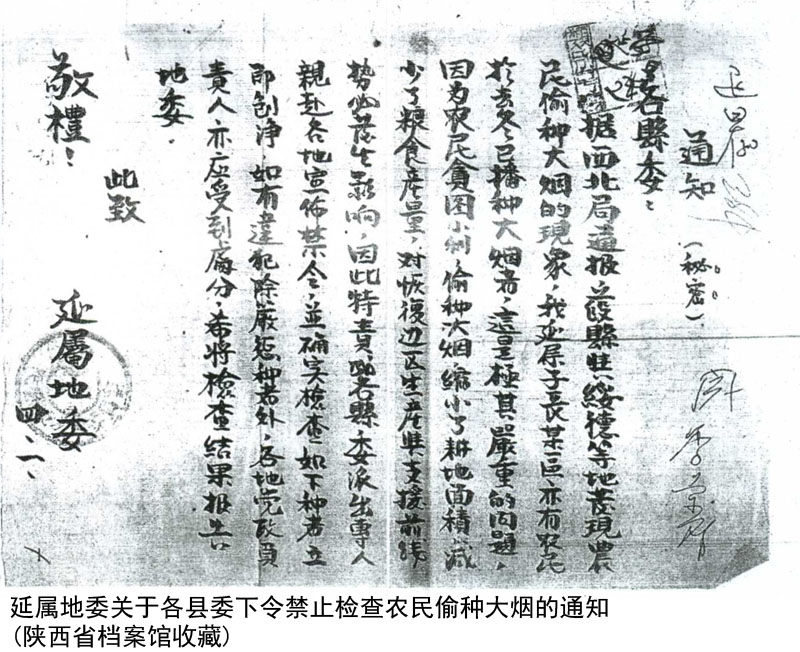 通知 (秘密)
各縣委:
据西北局通报 縣 绥德等地發現農
民偷种大烟的現象,我延属子長某區亦有农民
於去冬已播种大烟者,這是極其嚴重的问题,
因为农民貪图小利,偷种大烟缩小了耕地面積,减
少了粮食產量,对恢復边区生産與支援前线
势必發生影响,因此特責成各縣委派出專人
親赴各地宣佈禁令,並确实檢查如下种者立
即刨净,如有違犯除嚴惩种者外,各地党政負
責人亦应受到處分,希將檢查结果报告
地委.
此致
敬禮!
延屬地委
四、二、
延属地委关于各县委下令禁止检查农民偷种大烟的通知
(陕西省档案馆收藏)